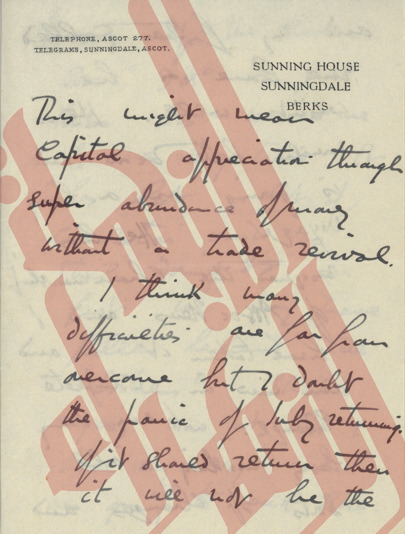 TELEPHONE, ASCOT 277.
TELEGRAMS, SUNNINGDALE, ASCOT.
SUNNING HOUSE
SUNNINGDALE
BERKS
This might mean
Capital appreciation through
super abundance of money
without a trade revival.
I think many
difficulties are far from
overcome but I doubt
the panic of July returning.
If it should return then
it will not be the